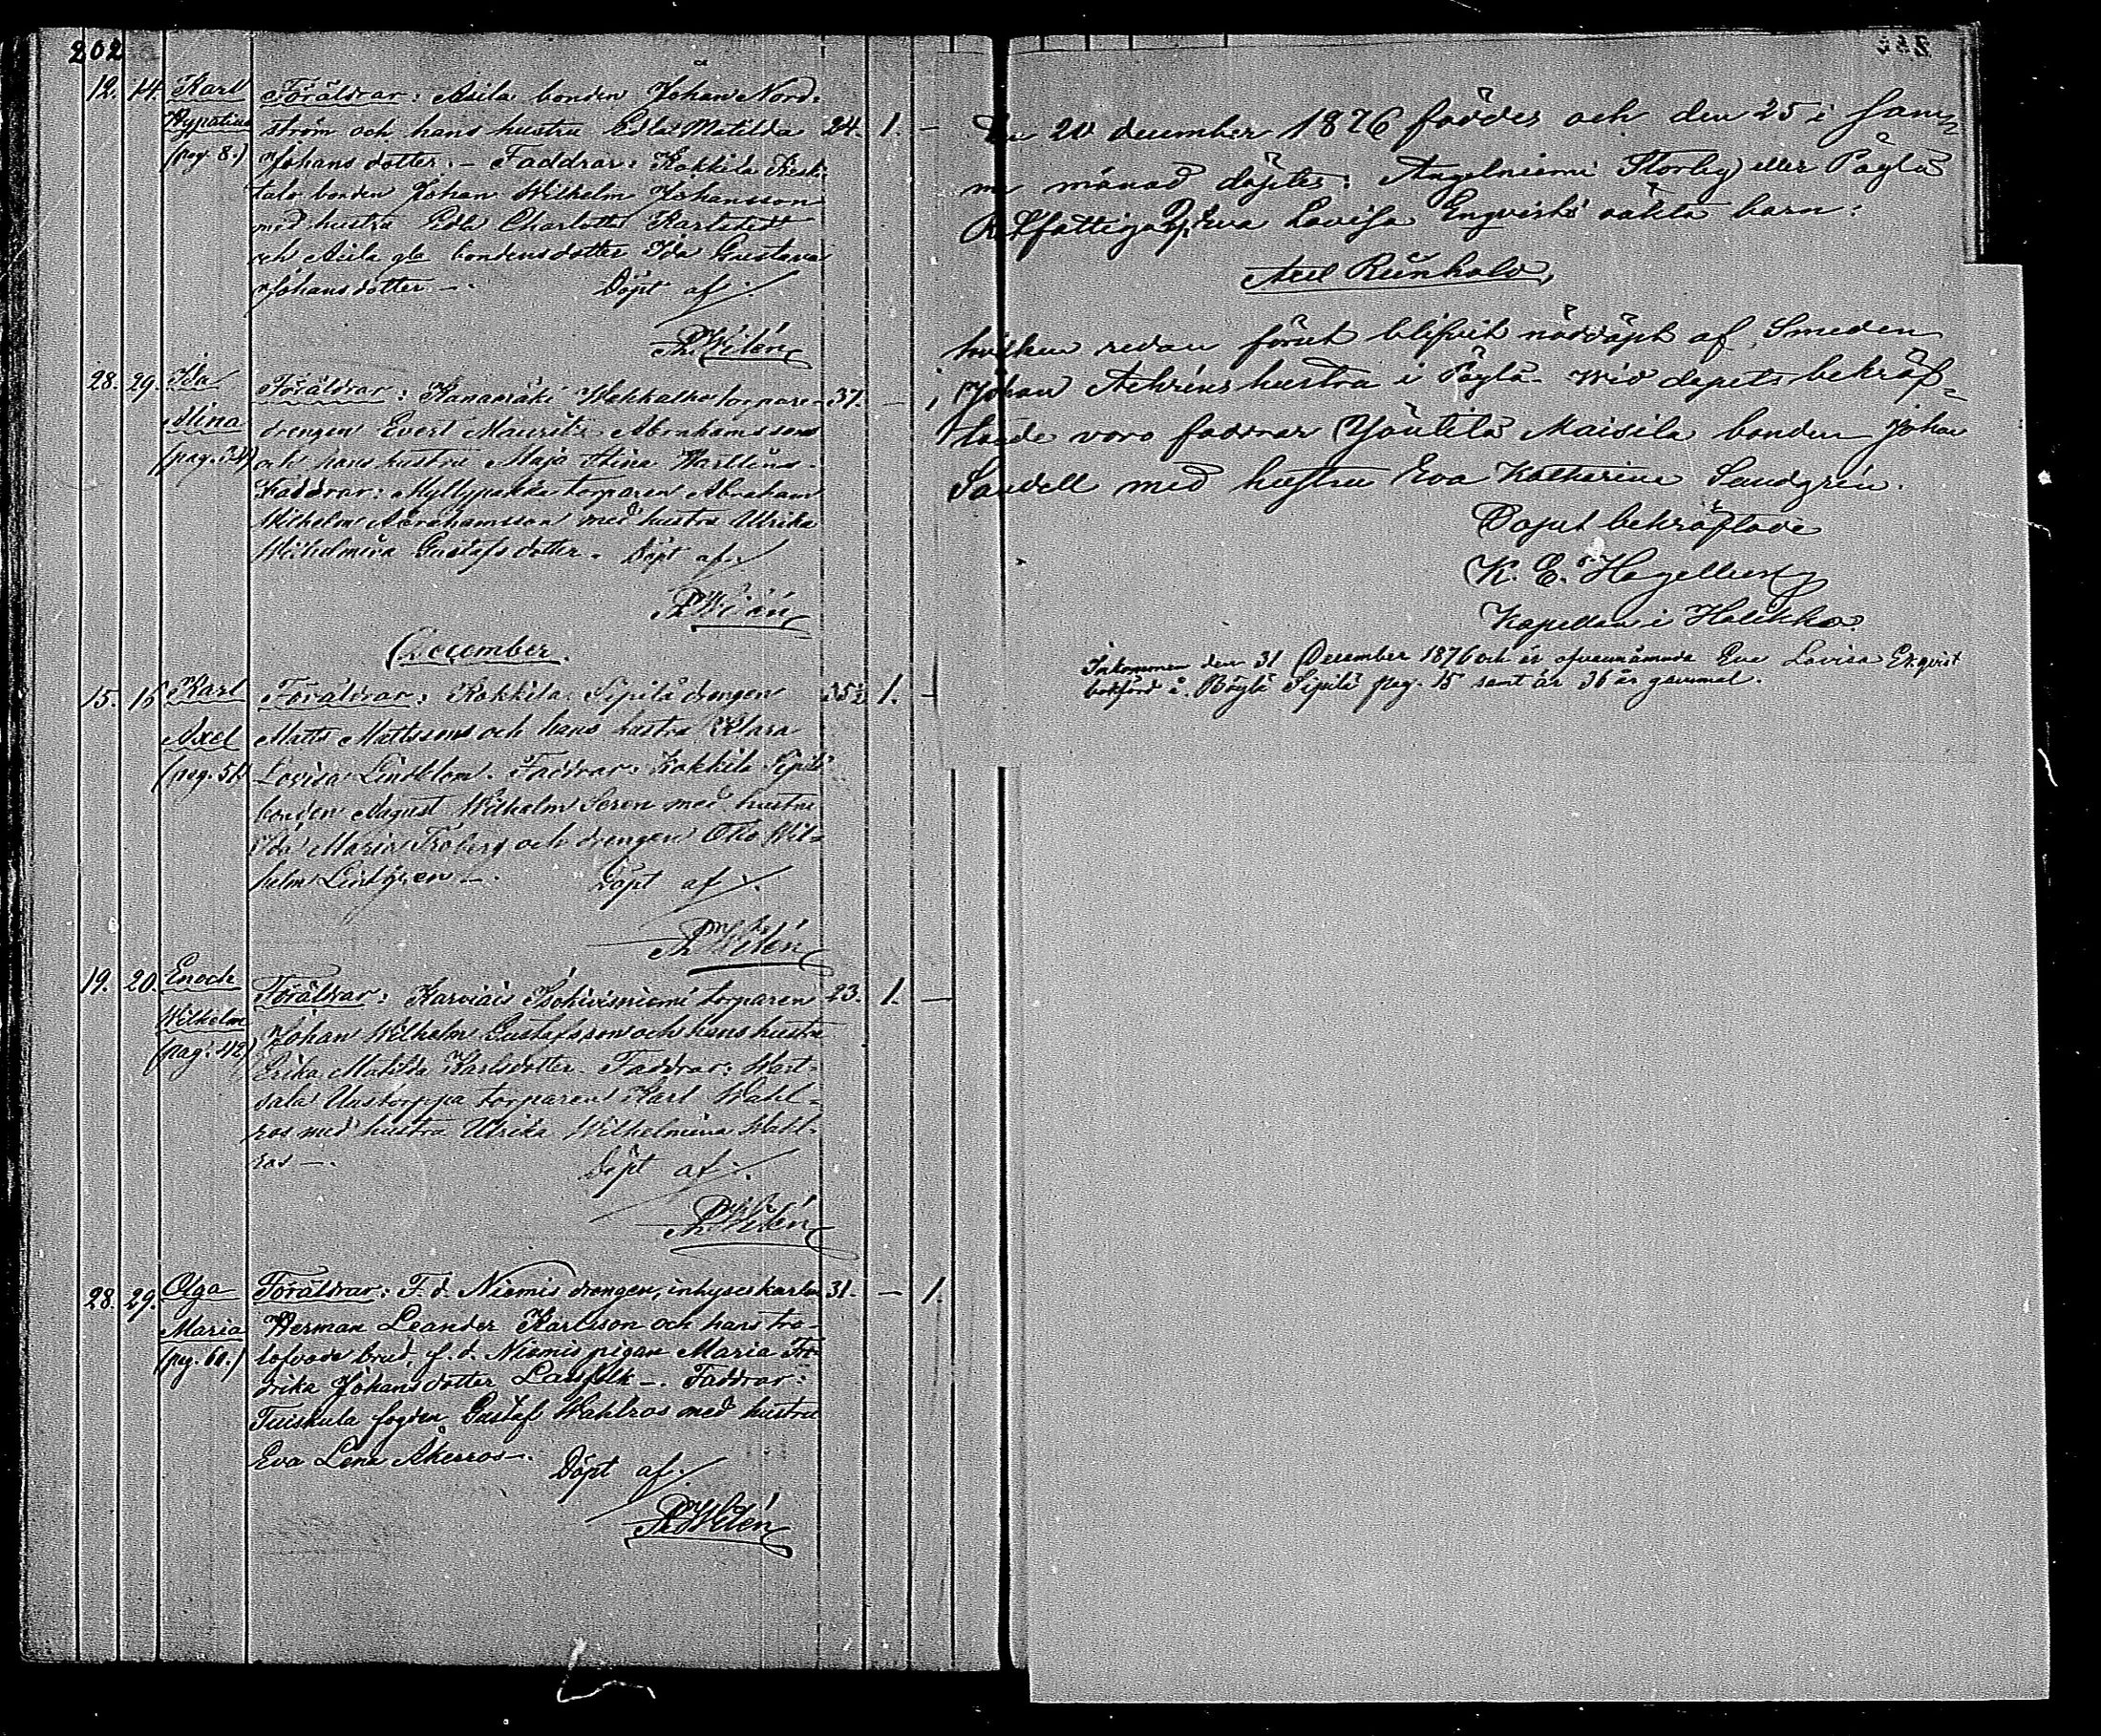 202
12. 14. Karl Föräldrar: Asila bonden Johan Nord-
Hypatius ström och hans hustru Edla Matilda 24. 1. —
(pag. 8.) Johansdotter. — Faddrar: Kokkila Keski-
talo bonden Johan Wilhelm Johansson
med hustru Edla Charlotta Karlstedt
och Asila gla bondensdotter Ida Gustava
Johansdotter —. Döpt af ./.
Th. Wilén
28. 29. Ida Föräldrar: torpare- 37. — 1
Mina drengen Evert Mauritz Abrahamsson
och hans hustru Maja Stina
Faddrar: Myllypakka torparen Abraham
Wilhelm Abrahamsson med hustru Ulrika
Wilhelmina Gustafsdotter. Döpt af ./.
Th. Wilén
December.
15. 16 Karl Föräldrar: Kokkila Sipilä drengen 35½ 1. —
Axel Matts Mattsson och hans hustru Klara
(pag. 51) Lovisa Lindblom. Faddrar: Kokkila Sipilä
bonden August Wilhelm Seren med hustru
Ida Maria Fröberg och drengen Otto Wil-
helm Lindgren —. Döpt af ./.
Th. Wilén
19. 20. Enoch Föräldrar: Karviais Isohiisniemi torparen 23. 1. —
Wilhelm Johan Wilhelm Gustafsson och hans hustru
(pag. 42) Erika Matilda Karlsdotter. Faddrar: Wart-
sala Uustorppa torparen Karl Wahl-
ros med hustru Ulrika Wilhelmina Wahl-
ros —. Döpt af ./.
Th. Wilén
28. 29. Olga Föräldrar: F. d. Niemis drengen, inhyseskarlen 31. — 1.
Maria Herman Leander Karlsson och hans tro-
(pag. 60.) lofvade brud, f. d. Niemis pigan Maria Fre-
drika Johansdotter Landfolk —. Faddrar:
Tuiskula fogden Gustaf Wahlros med hustru
Eva Lena Åkerros —. Döpt af ./.
Th. Wilén
Den 20 december 1876 föddes och den 25 i sam-
ma månad döptes: Angelniemi Storby eller Pöylä
Eva Lovisa Engvists oäkta barn:
Axel Reinhold,
hvilken redan förut blifvit nöddöpt af Smeden
Johan Achréns hustru i Pöylä. Wid dopets bekräf-
tande voro faddrar Yöntilä Maisila bonden Johan
Sandell med hustru Eva Katharina Sundgrén.
Dopet bekräftade
K. E. Hagelberg
Kapellan i Halikko.
Inkommen den 31 December 1876 och är ofvannämnda Eva Lovisa Engvist
bokförd å Böylä Sipilä pag. 15 samt är 36 år gammal.